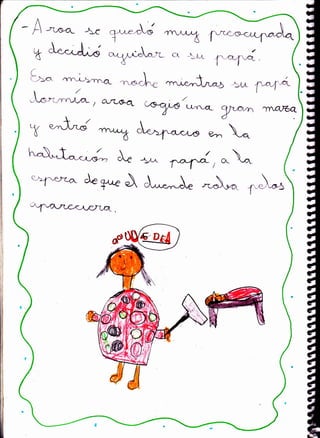 - Aroa se quedó muy preocupada
y decidió ayudar a su papá.
Esa misma noche mientras su papá
dormía, aroa cogió una gran maza
y entró muy despacio en la
habitación de su papá, a la
espera de que el duende roba pelos
apareciera.